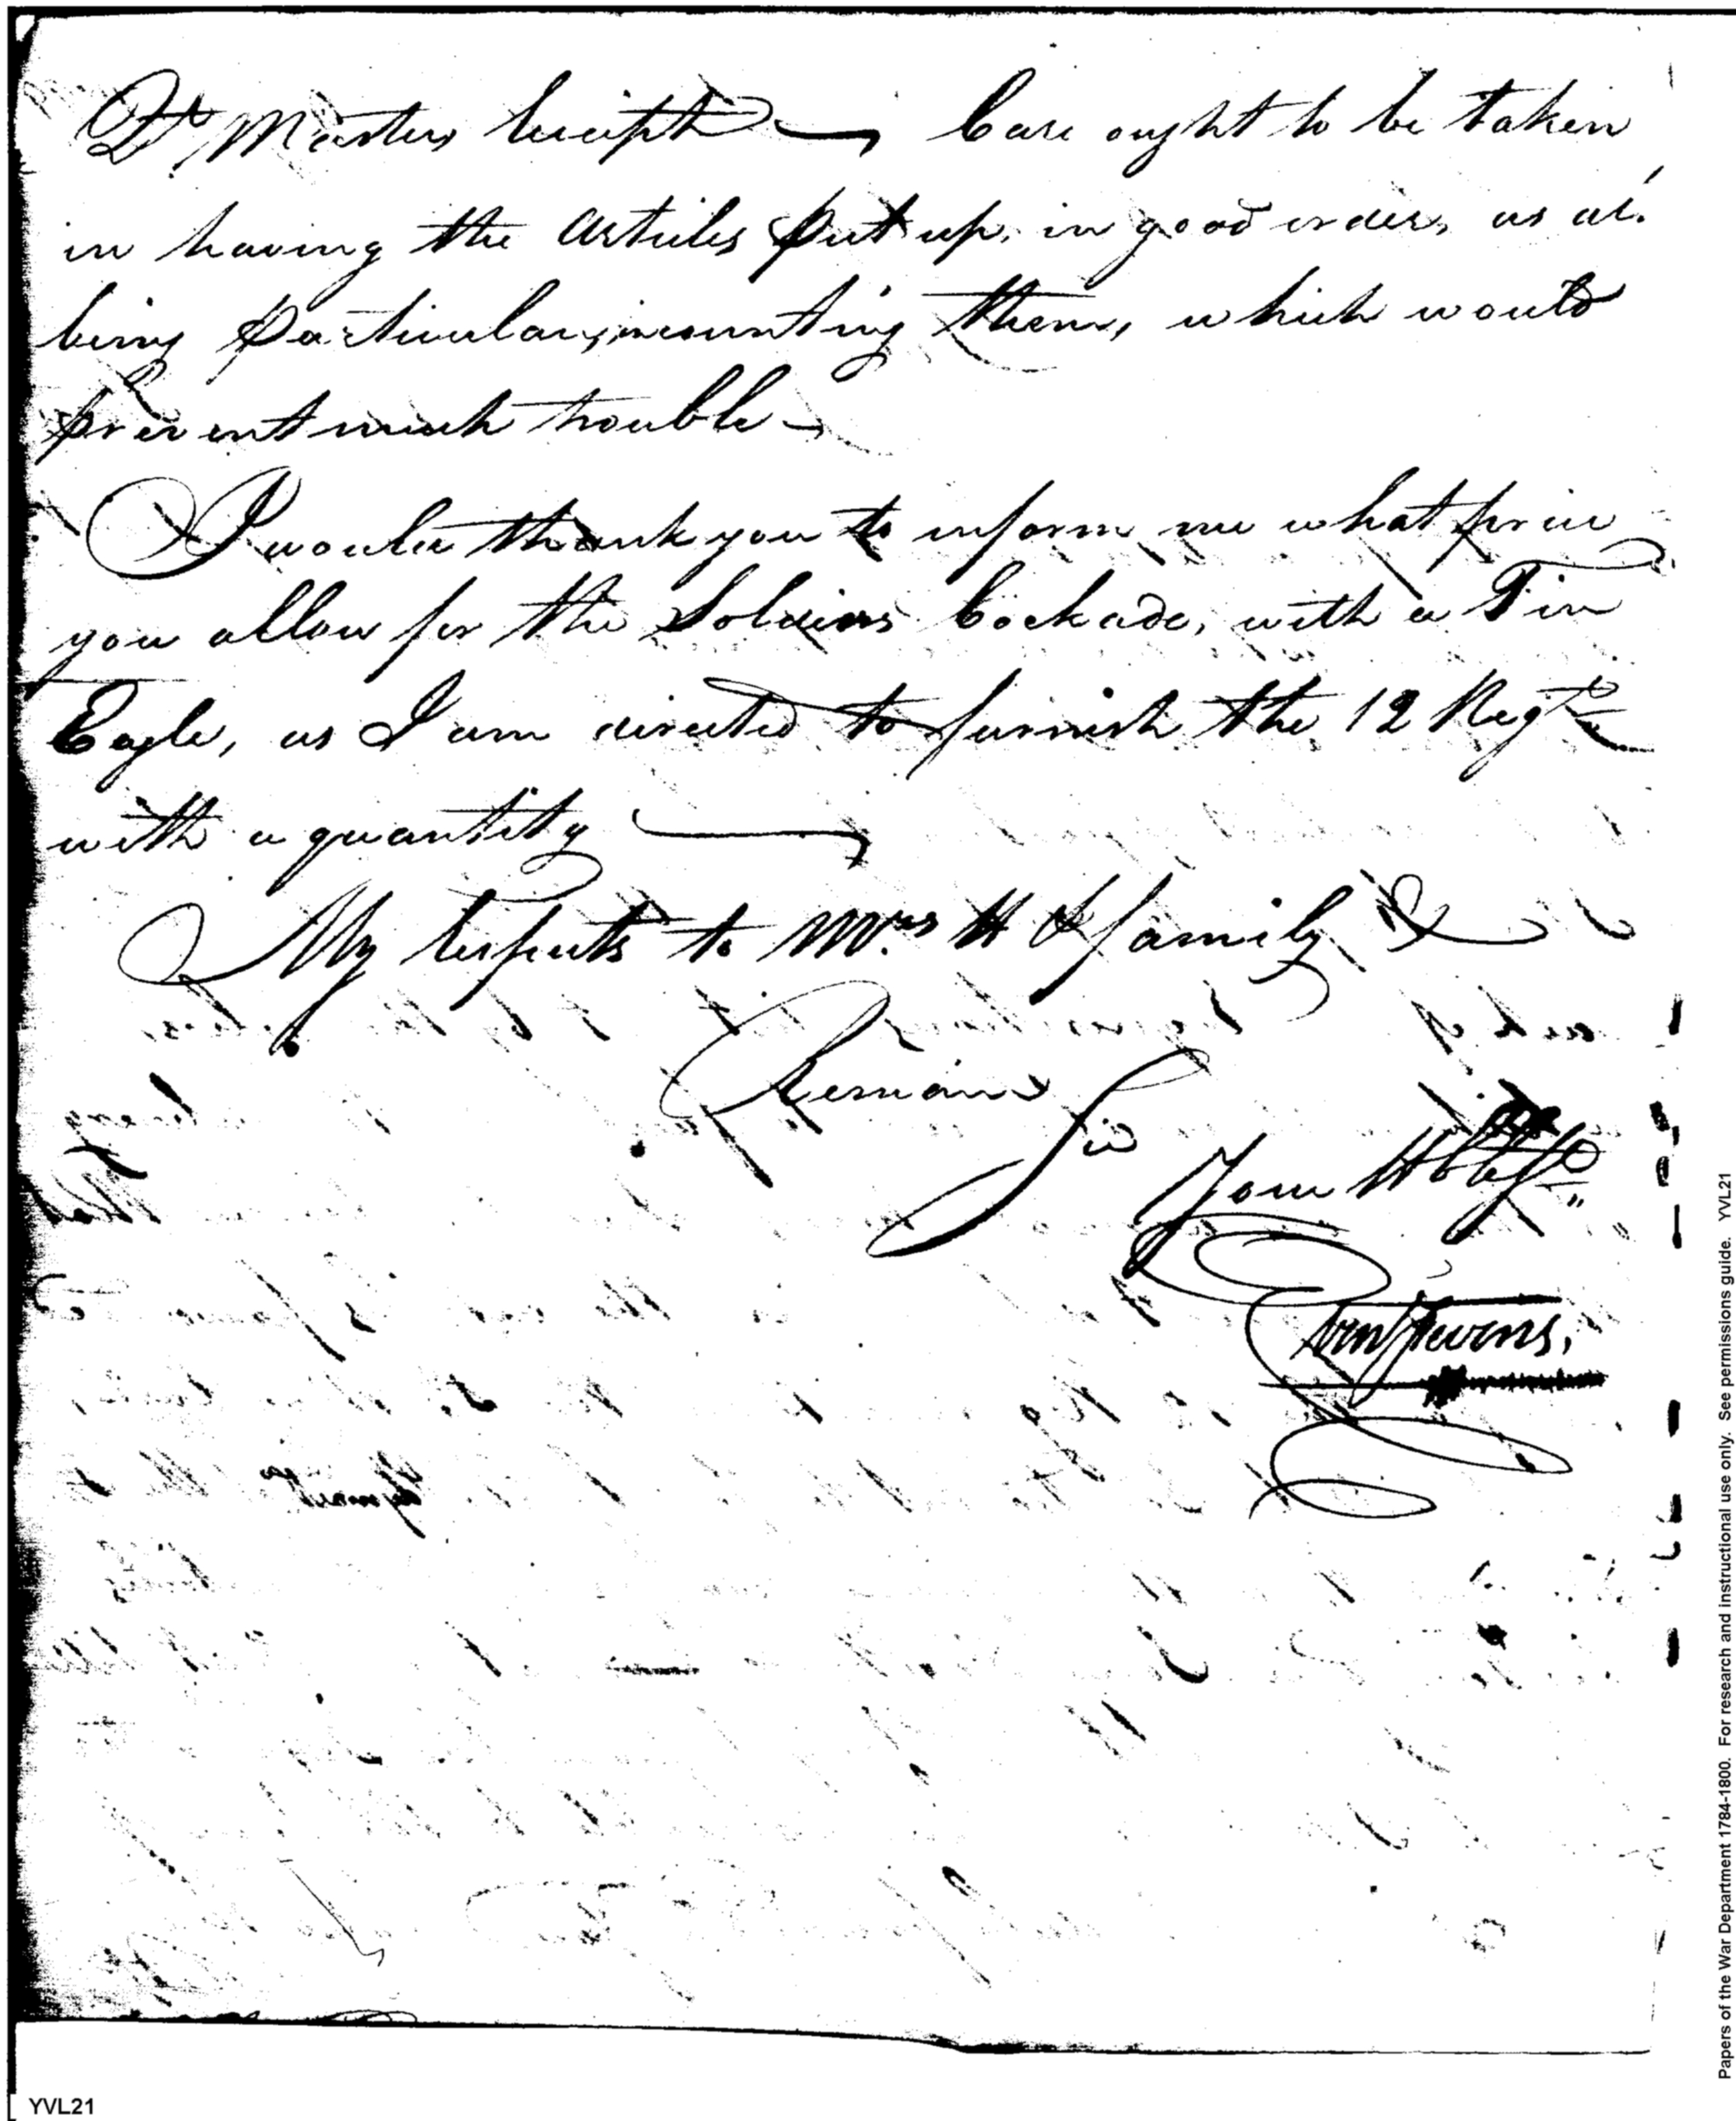 Qr Masters receipt — Care ought to be taken
in having the Articles put up, in good order, as al.
being Particular, mounting them, which would
prevent much trouble —
I would thank you to inform me what price
you allow for the Soldiers Cockade, with a Tin
Eagle, as I am directed to furnish the 12 Regt
with a quantity —
My respects to Mrs H & family &
Remain
Sir
Your
Stevens.
Papers of the War Department 1784-1800. For research and instructional use only. See permissions guide. YVL21
YVL21